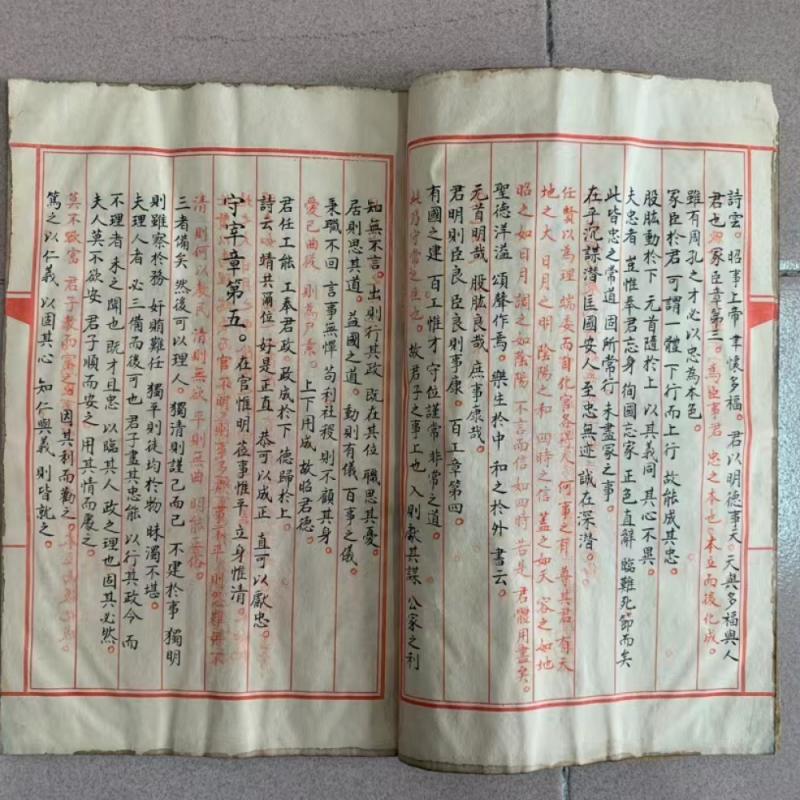 詩雲。昭事上帝 聿懷多福。君以明德事天。天與多福與人
君也。冢臣章第三。為臣事君 忠之本也 本立而後化成。
雖有周孔之才必以忠為本色。
冢臣於君 可謂一體 下行而上行 故能成其忠。
股肱動於下 元首隨於上 以其義同 其心不異。
夫忠者 豈惟奉君忘身 徇國忘家 正色直辭 臨難死節而矣
此皆忠之常道 固所常行 未盡冢之事。
在乎沉謀潜 匡國安人 至忠無迹 誠在深潜。
任賢以為理 端委而自化 官各 何事之有 尊其君 有天
地之大 日月之明 陰陽之和 四時之信 蓋之如天 容之如地
昭之如日月 調之如陰陽 不言而信 如四時 若是 君體用盡矣。
聖德洋溢 頌聲作焉。樂生於中 和之於外 書云。
元首明哉 股肱良哉 庶事康哉。
君明則臣良 臣良則事康。百工章第四。
有國之建 百工惟才 守位謹常 非常之道。
此乃守常之臣也。故君子之事上也 入則獻其謀 公家之利
知無不言。出則行其政 既在其位 職思其憂。
居則思其道。益國之道。動則有儀 百事之儀。
秉職不回 言事無憚 苟利社稷 則不顧其身。
愛己曲從 則為尸素。上下用成 故昭君德。
君任工能 工奉君政。政成於下 德歸於上。
詩云 靖共爾位 好是正直 恭可以成正 直可以獻忠。
守宰章第五。在官惟明 莅事惟平 立身惟清
清則何以教民 清則無欲 平則無曲 明能 俗。
三者備矣 然後可以理人。獨清則謹己而已 不建於事 獨明
則雖察於務 奸賄難任 獨平則徒均於物 昧濁不堪。
夫理人者 必三備而後可也 君子盡其忠能 以行其政令 而
不理者 未之聞也 既才且忠 以臨其人 政之理也 固其必然。
夫人莫不欲安 君子順而安之 用其情而處之。
莫不欲富 君子教而富之。因其利而勸之。
篤之以仁義 以固其心 知仁與義 則皆就之。